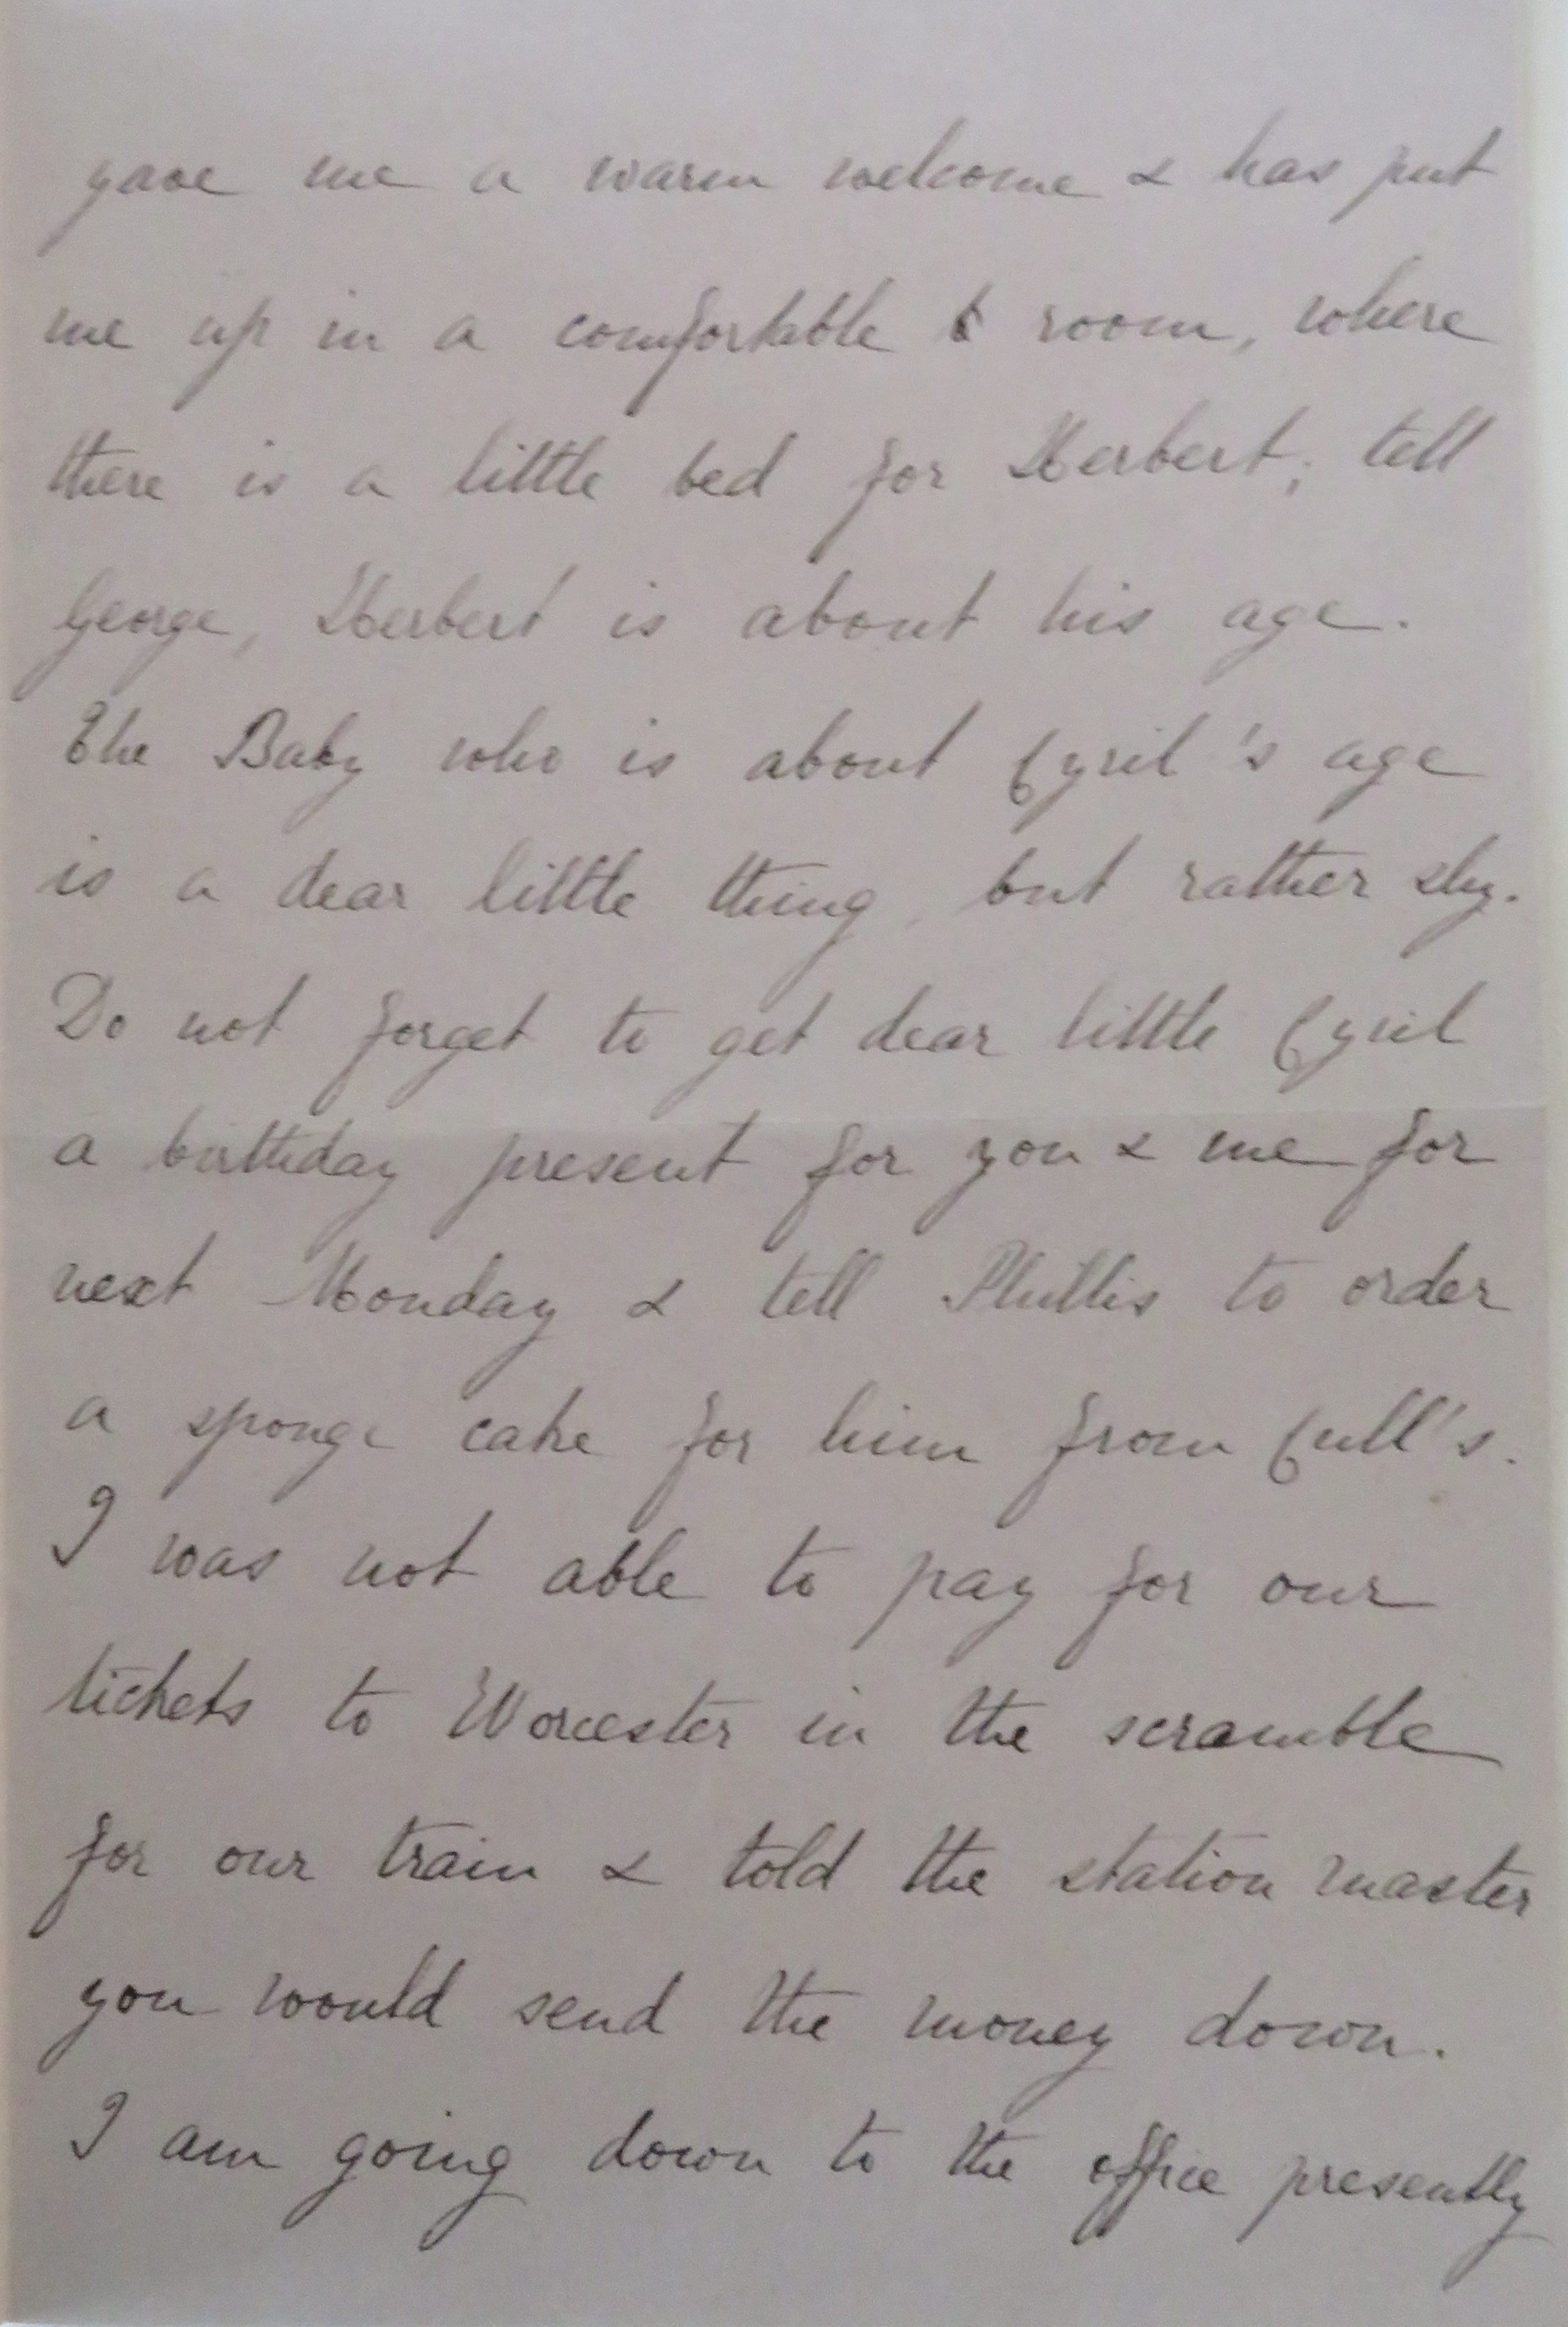 gave me a warm welcome & has put
me up in a comfortable room, where
there is a little bed for Herbert; tell
George, Herbert is about his age.
The Baby who is about Cyril's age
is a dear little thing, but rather shy.
Do not forget to get dear little Cyril
a birthday present for you & me for
next Monday & tell Phillis to order
a sponge cake for him from Cull's.
I was not able to pay for our
tickets to Worcester in the scramble
for our train & told the station master
you would send the money down.
I am going down to the office presently